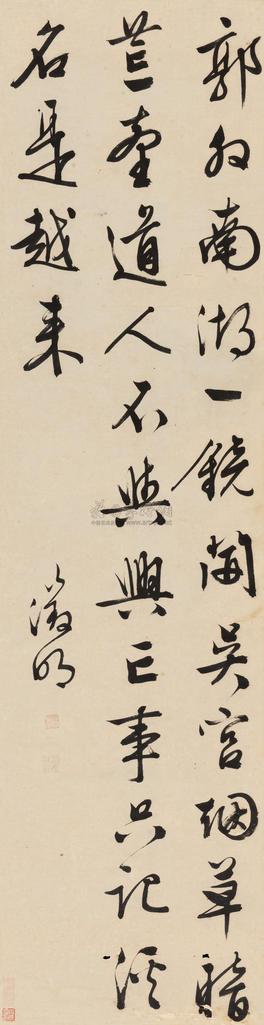 郭外南湖一鏡開吴宫烟草暗
荒臺道人不與興亡事只記溪
名是越来
徵明